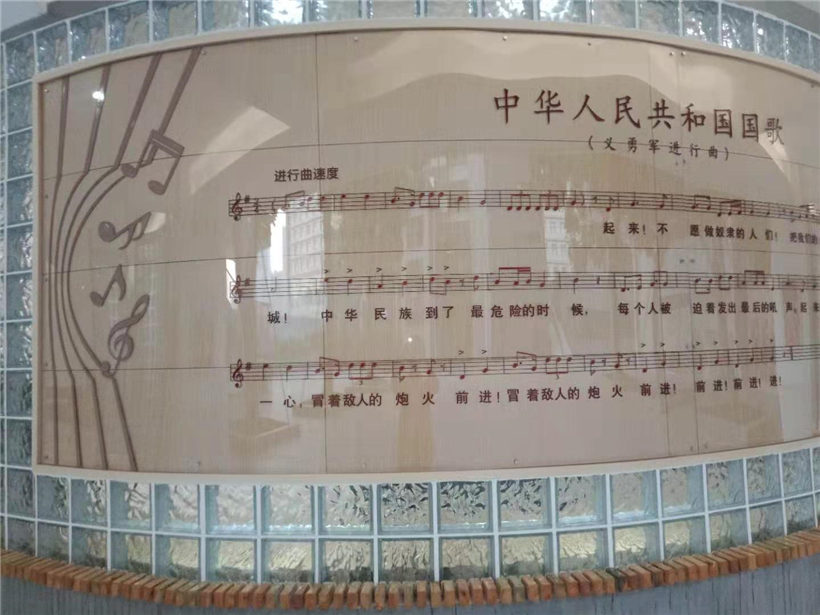 中华人民共和国国歌
（义勇军进行曲）
进行曲速度
起来！不 愿做奴隶的人 们！ 把我们的
城！ 中 华 民 族 到 了 最 危 险的时 候， 每 个 人 被 迫 着 发 出 最 后的吼 声。起 来
一 心，冒着敌人的 炮 火 前 进！冒着敌人的 炮 火 前 进！ 前 进！前 进！进！